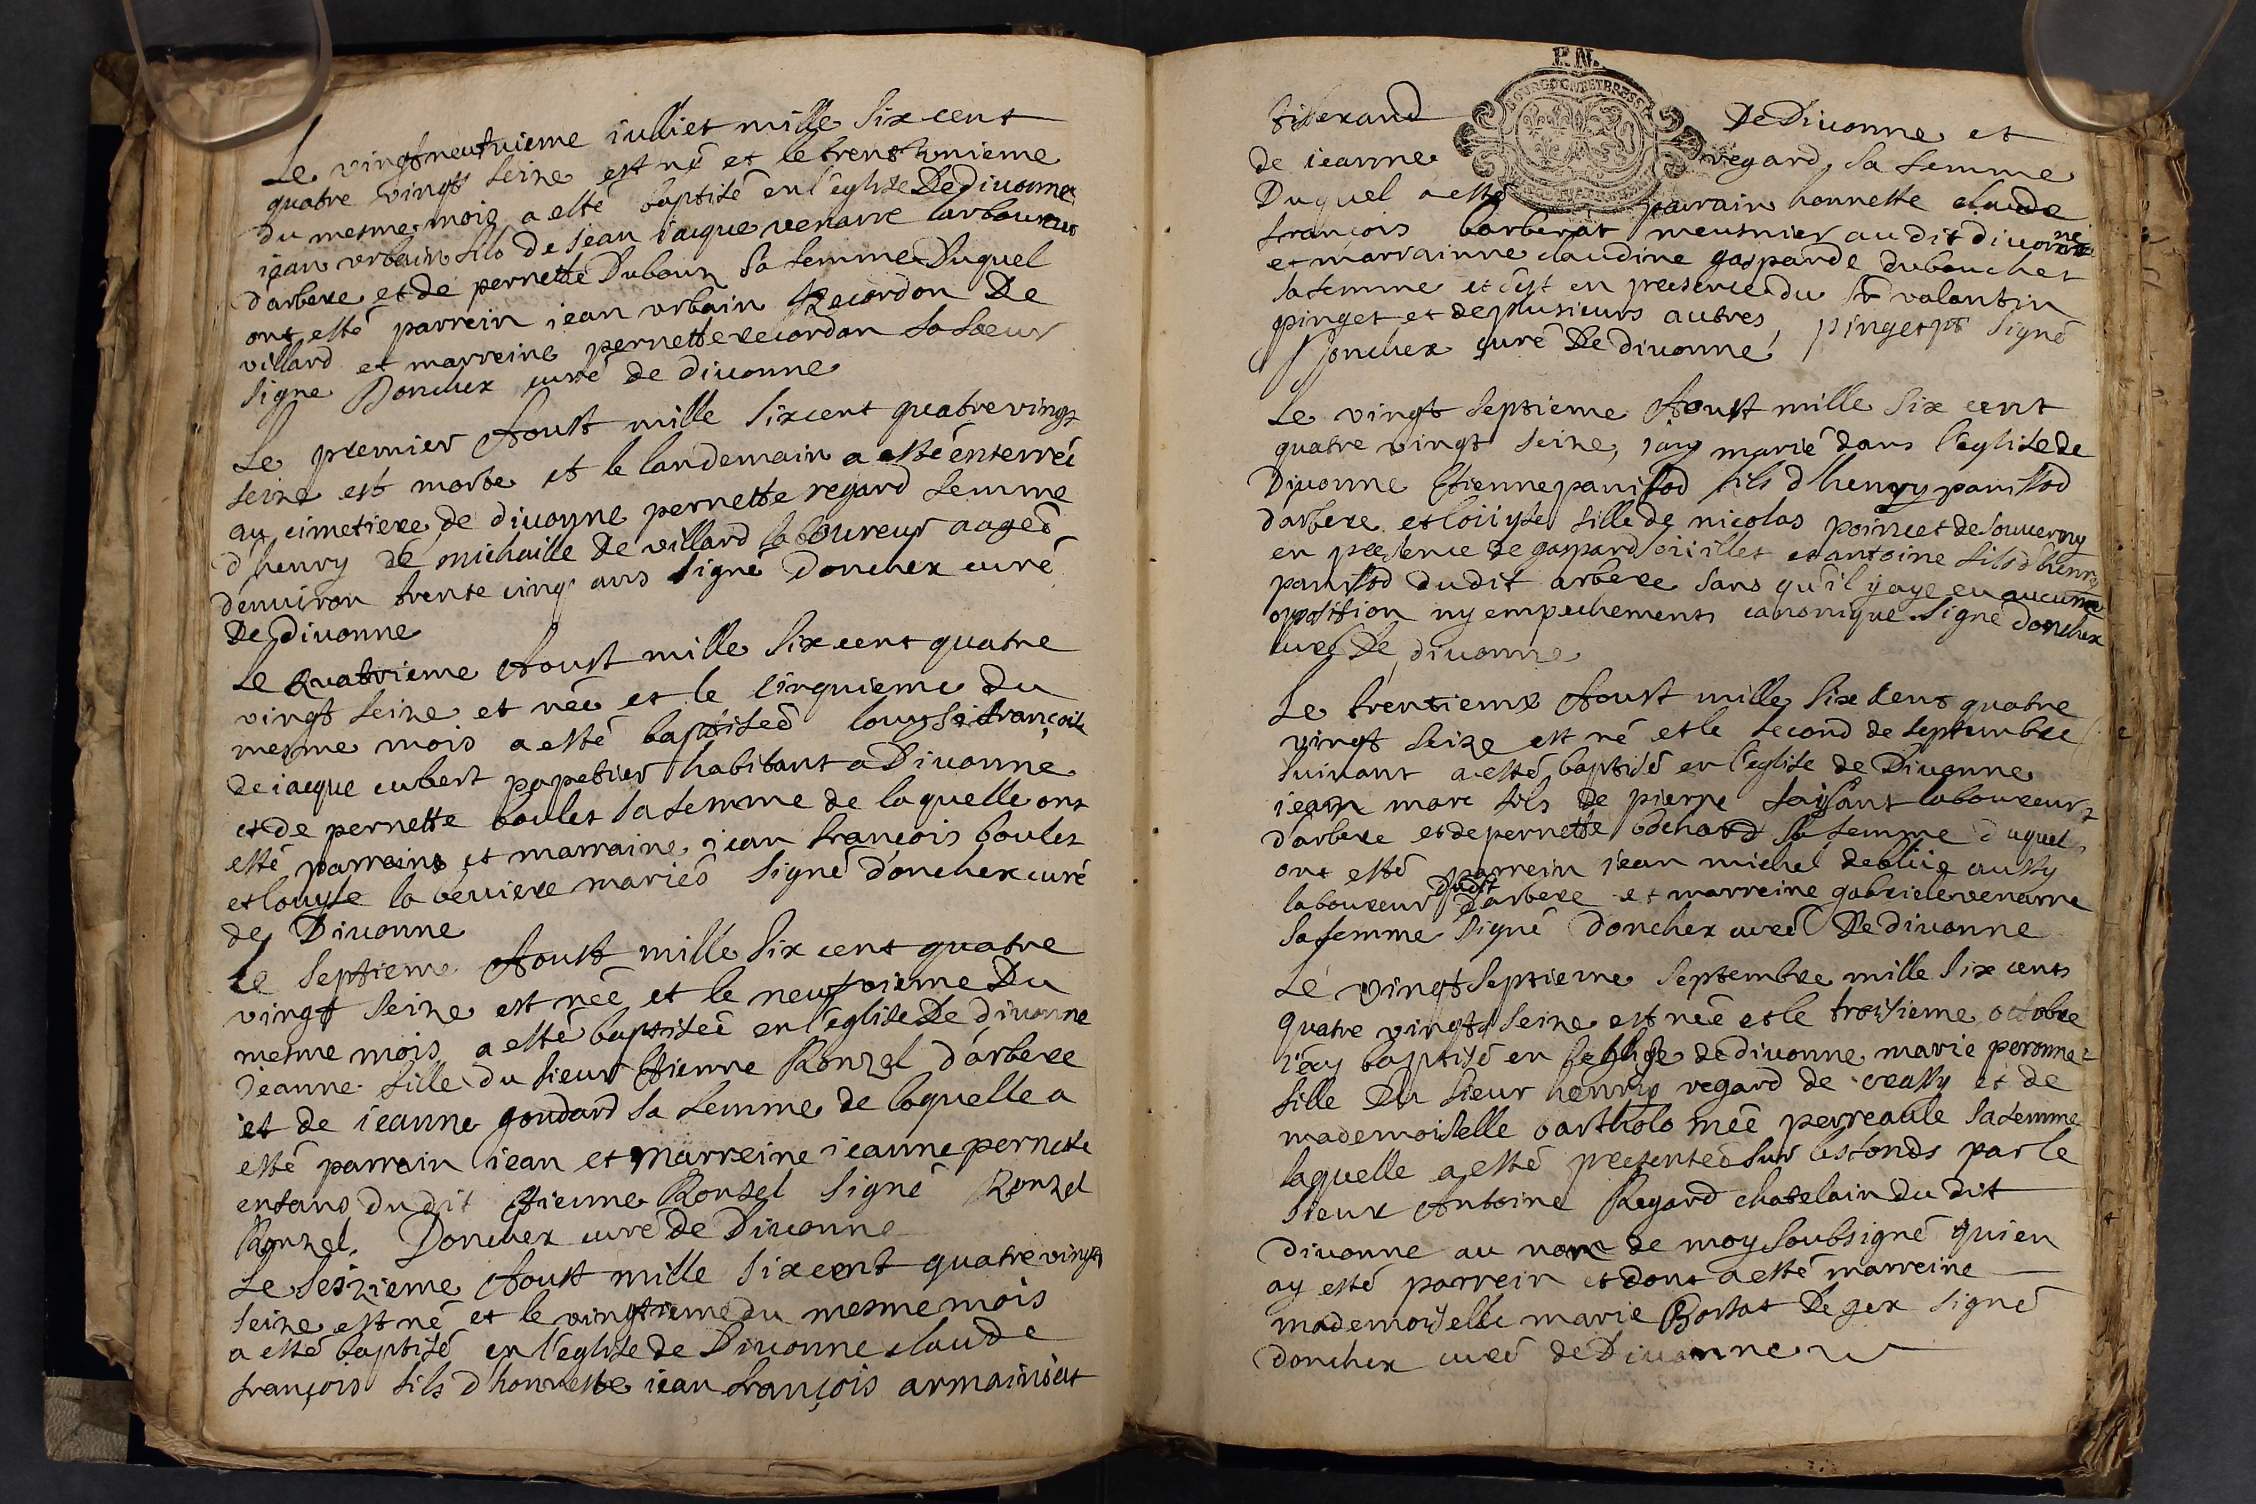 Le vingt neufvieme iulliet mille six cent
quatre vingt seize est né et le trent unieme
du mesme mois a esté baptisé en l'eglise De divonne
jean urbain fils de jean iacque venarre laboureur
d'arbere et de pernette Duboux sa femme Duquel
ont esté parrein iean urbain Recordon De
villard et marreine pernette recordon sa soeur
signe Donchex curé de divonne
Le premier Aoust mille six cent quatre vingt
seize est morte et le landemain a esté enterrée
au cimetiere de divonne pernette regard femme
d'henry de michaille De villard laboureur aageé
d'environ trente cinq ans signé Donchex curé
De divonne
Le quatrieme Aoust mille six cent quatre
vingt seize et née et le cinquieme du
mesme mois a esté baptiseé louyse françoise
de iacque cubert papetier habitant a Divonne
et de pernette boulet sa femme de laquelle ont
esté parreins et marraine jean françois boulet
et louyse la beviere mariés signé doncher curé
de Divonne
Le septieme Aoust mille six cent quatre
vingt seize est née et le neufvieme Du
mesme mois a esté baptiseé en l'eglise De divonne
Jeanne fille du sieur Etienne Ronzel d'arbere
et de ieanne goudard sa femme de laquelle a
esté parrain iean et Marreine ieanne pernette
enfans du dit Etienne Ronzel signé Ronzel
Ronzel. Donchex curé de Divonne
Le seizieme Aoust mille six cent quatre vingt
seize est né et le vingtieme du mesme mois
a esté baptisé en l'eglise de Divonne claude
françois fils d'honneste iean françois armainiat
tisserand De Divonne et
de ieanne regard sa femme
Duquel a esté parrain honneste claude
françois barberat meusnier au dit divonne
et marrainne claudine gasparde dubouchet
sa femme et c'est en presence du Sr valantin
pinget et de plusieurs autres, pinget pt signé
Donchex curé De divonne
Le vingt septieme Aoust mille six cent
quatre vingt seize, j'ay marié dans l'eglise de
Divonne Etienne panissod fils d'henry panissod
d'arbere et loüyse fille de nicolas poincet de souverny
en presence de gaspard oüillet et antoine fils d'henry
panissod dudit arbere sans qu'il y aye eu aucune
opposition ny empechements canonique signé donchex
curé De divonne
Le trentieme Aoust mille six cent quatre
vingt seize est né et le second de septembre
suivant a esté baptisé en l'eglise de Divonne
iean marc fils de pierre faisant laboureur
d'arbere et de pernette bochard sa femme duquel
ont esté parrein iean michel deblüe aussy
laboureur dudit d'arbere et marreine gabriele venarre
sa femme signé donchex curé De divonne
Le vingt septieme septembre mille six cents
quatre vingts seize est née et le troisieme octobre
i'ay baptisé en l'eglise de divonne marie peronne
fille Du sieur henry regard de crassy et de
mademoiselle bartholomée perreaule sa femme
laquelle a esté presenteé sur les fonds par le
sieur Antoine Regard chatelain du dit
divonne au nom de moy soubsigné qui en
ay esté parrein et dont a esté marreine
mademoiselle marie Bossat De gex signé
donchex curé de Divonne
P. N.
BOURGOGNE ET BRESSE